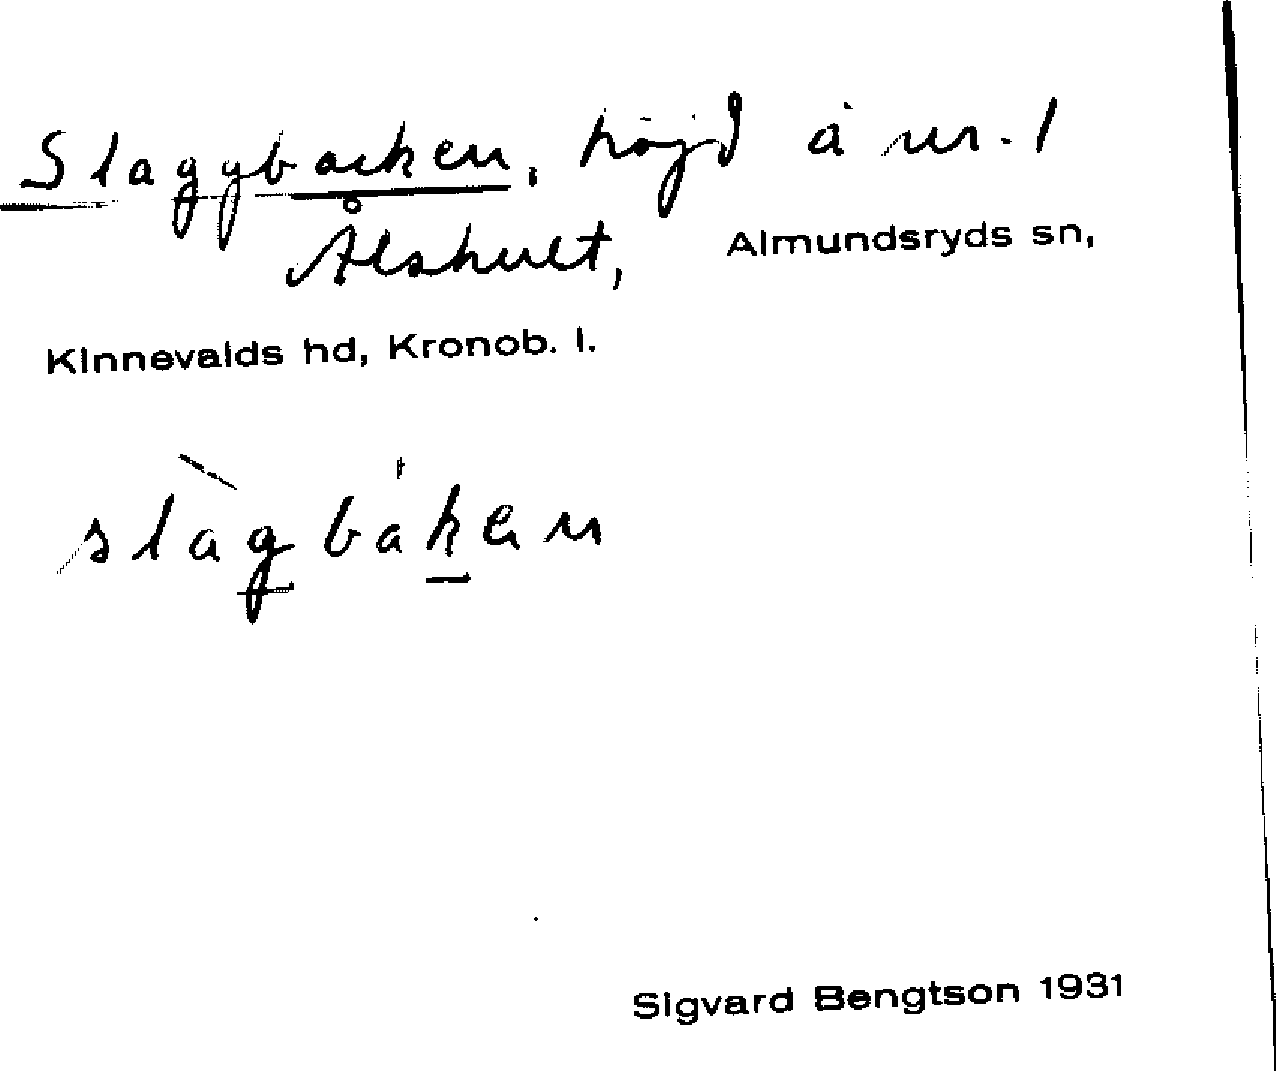 Slaggbacken, höjd å nr. 1
Ålshult, Almundsryds sn,
Kinnevalds hd, Kronob. l.
slàgbáken
Sigvard Bengtson 1931